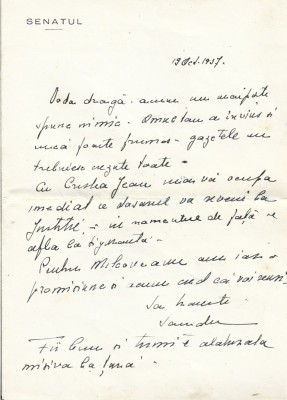 SENATUL
19 Oct. 1937.
Doda dragă acum nu mai pot
spune nimic. Omul au a învins si
încă foarte frumos - gazetele nu
trebuiesc văzute toate -
Cu Cristea Jean mă voi ocupa
imediat ce dosarul va reveni la
Justiție - in momentul de față se
află la Siguranță -
Pentru Milcoveanu am
promisiune si acum cred că voi reuși -
Sandu
Fii bun si trimite alăturata
misiva la țară -